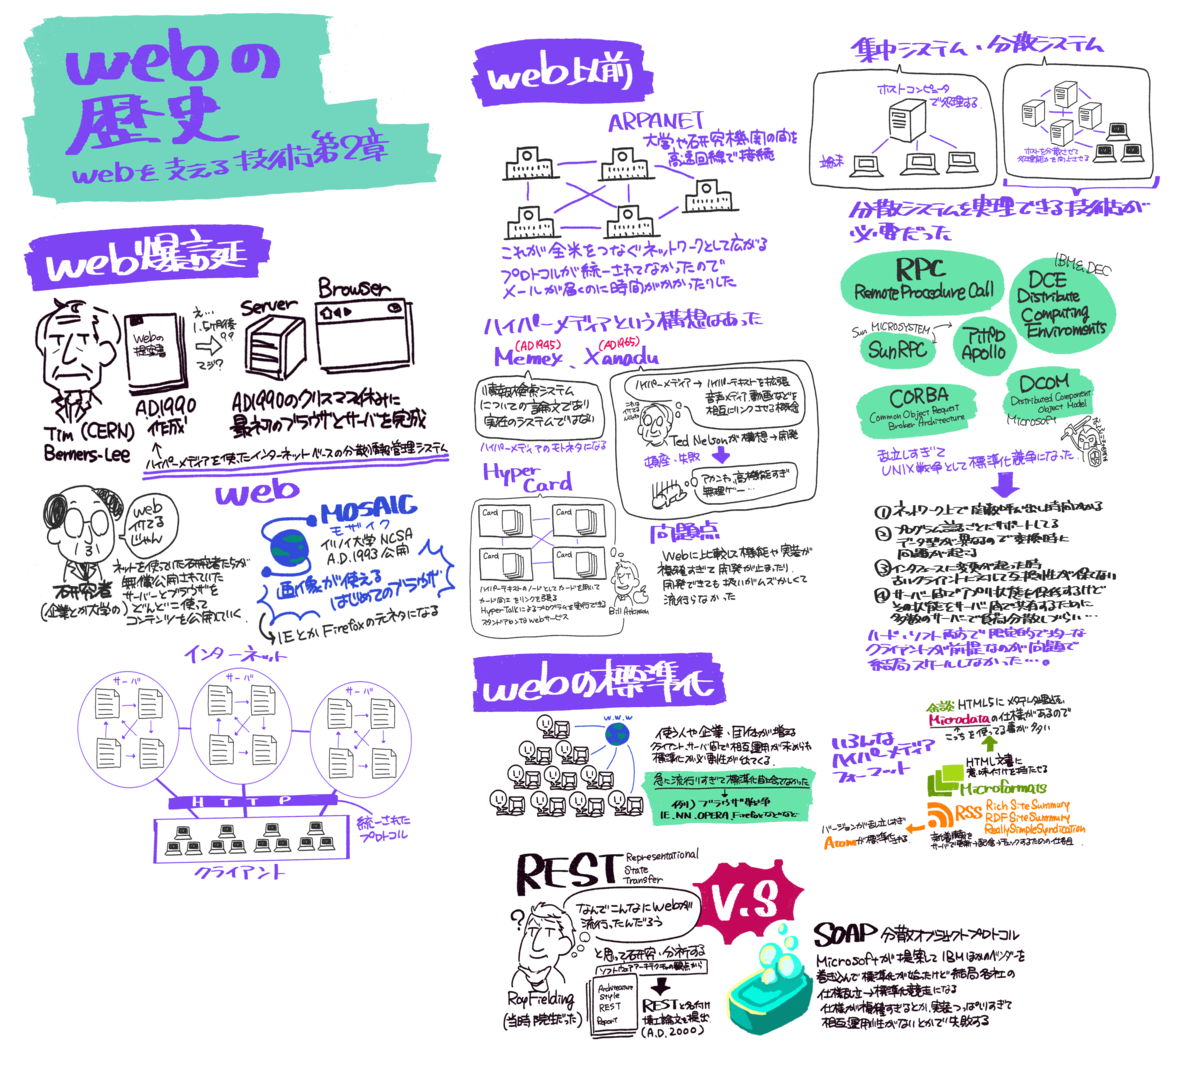 webの
歴史
webを支える技術第2章
web爆誕
Tim (CERN)
Berners-Lee
webの
提案書
A.D.1990
作成
え…
1.5ヶ月後
??
マジ?
Server
Browser
A.D.1990のクリスマス休みに
最初のブラウザとサーバを完成
ハイパーメディアを使ったインターネットベースの分散情報管理システム
web
web
イケてる
じゃん
研究者
(企業とか大学の)
ネットを使っていた研究者たちが
無償公開されていた
サーバーとブラウザを
どんどこ使って
コンテンツを公開していく
MOSAIC
モザイク
イリノイ大学 NCSA
A.D.1993 公開
画像が使える
はじめてのブラウザ
IEとかFirefoxの元ネタになる
インターネット
サーバ
サーバ
サーバ
HTTP
統一された
プロトコル
クライアント
web以前
ARPANET
大学や研究機関の間を
高速回線で接続
これが全米をつなぐネットワークとして広がる
プロトコルが統一されてなかったので
メールが届くのに時間がかかったりした
ハイパーメディアという構想はあった
(AD1945)
(AD1965)
Memex、Xanadu
情報検索システム
についての論文であり
実在のシステムではない
ハイパーメディアのモトネタになる
ハイパーメディア→ハイパーテキストを拡張
音声メディア、動画などを
相互にリンクさせる概念
Ted Nelsonが構想→開発
頓挫・失敗
アカンわ、高機能すぎ
無理ゲー…
Hyper
Card
Card
Card
Card
Card
ハイパーテキストのノードとしてカードを用いて
カード間にリンクを張る
HyperTalkによるプログラムを実行できる
スタンドアロンなwebサービス
Bill Atkinson
問題点
Webに比較して機能や実装が
複雑すぎて開発が止まったり
開発できても扱いがムズかしくて
流行らなかった
集中システム、分散システム
ホストコンピュータ
で処理する
端末
ホストを分散させて
処理能力を向上させる
分散システムを実現できる技術が
必要だった
RPC
Remote Procedure Call
IBM & DEC
DCE
Distribute
Computing
Enviroments
Sun MICROSYSTEM
SunRPC
アポロ
Apollo
CORBA
Common Object Request
Broker Architecture
DCOM
Distributed Component
Object Model
Microsoft
乱立しすぎて
UNIX戦争として標準化競争になった
①ネットワーク上で関数呼び出しは時間がかかる
②プログラム言語ごとにサポートしてる
データ型が異なるので変換時に
問題が起こる
③インタフェースに変更が起った時
古いクライアントに対して互換性が保てない
④サーバ間でアプリ状態を保存するけど
その状態をサーバ間で共有するために
多数のサーバで負荷分散しづらい…
ハード・ソフト両方で限定的でリッチな
クライアントが前提なのが問題で
結局スケールしなかった…。
webの標準化
w.w.w
使う人や企業、団体が増える
クライアント、サーバ間で相互運用が求められ
標準化が必要性が出てくる
急に流行りすぎて標準化間に合ってなかった
例) ブラウザ戦争
IE.NN.OPERA.Firefoxなどなど
いろんな
ハイパーメディア
フォーマット
余談 HTML5にメタデータ埋込
Microdataの仕様があるので
こっちを使ってる事が多い
HTML文書に
意味付けを持たせる
Microformats
RSS
Rich Site Summary
RDF Site Summary
Really Simple Syndication
新着情報を
サーバで更新→配信→チェックするための仕組
バージョンが乱立しすぎ
Atomが標準化される
REST
Representational
State
Transfer
V.S
なんでこんなにWebが
流行ったんだろう
?
Roy Fielding
(当時院生だった)
と思って研究・分析する
ソフトウェアアーキテクチャの観点から
Architecture
Style
REST
Report
RESTと名付け
博士論文を提出
(A.D.2000)
SOAP 分散オブジェクトプロトコル
Microsoftが提案してIBMほかベンダーを
巻き込んで標準化が始ったけど結局各社の
仕様乱立→標準化競走になる
仕様が複雑すぎるとか、実装つっぱしりすぎて
相互運用性がないとかで失敗する